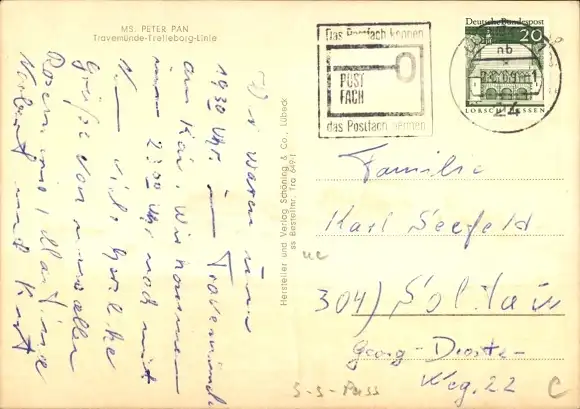 MS. PETER PAN
Travemünde-Trelleborg-Linie
Wir waren um
19.30 Uhr in Travemünde
am Kai. Wir kommen
um 22.00 Uhr noch mit
Nun viele herzliche
Grüße von uns allen
Norbert und Kurt
Hersteller und Verlag Schöning & Co., Lübeck
ss Bestellnr. Tra 649/1
Das Postfach kennen
POST
FACH
das Postfach nennen
Deutsche Bundespost
20
LORSCH/HESSEN
nb
24
Familie
Karl Seefeld
304) Soltau
Georg-Droste-
Weg 22
S-S-Pass
C